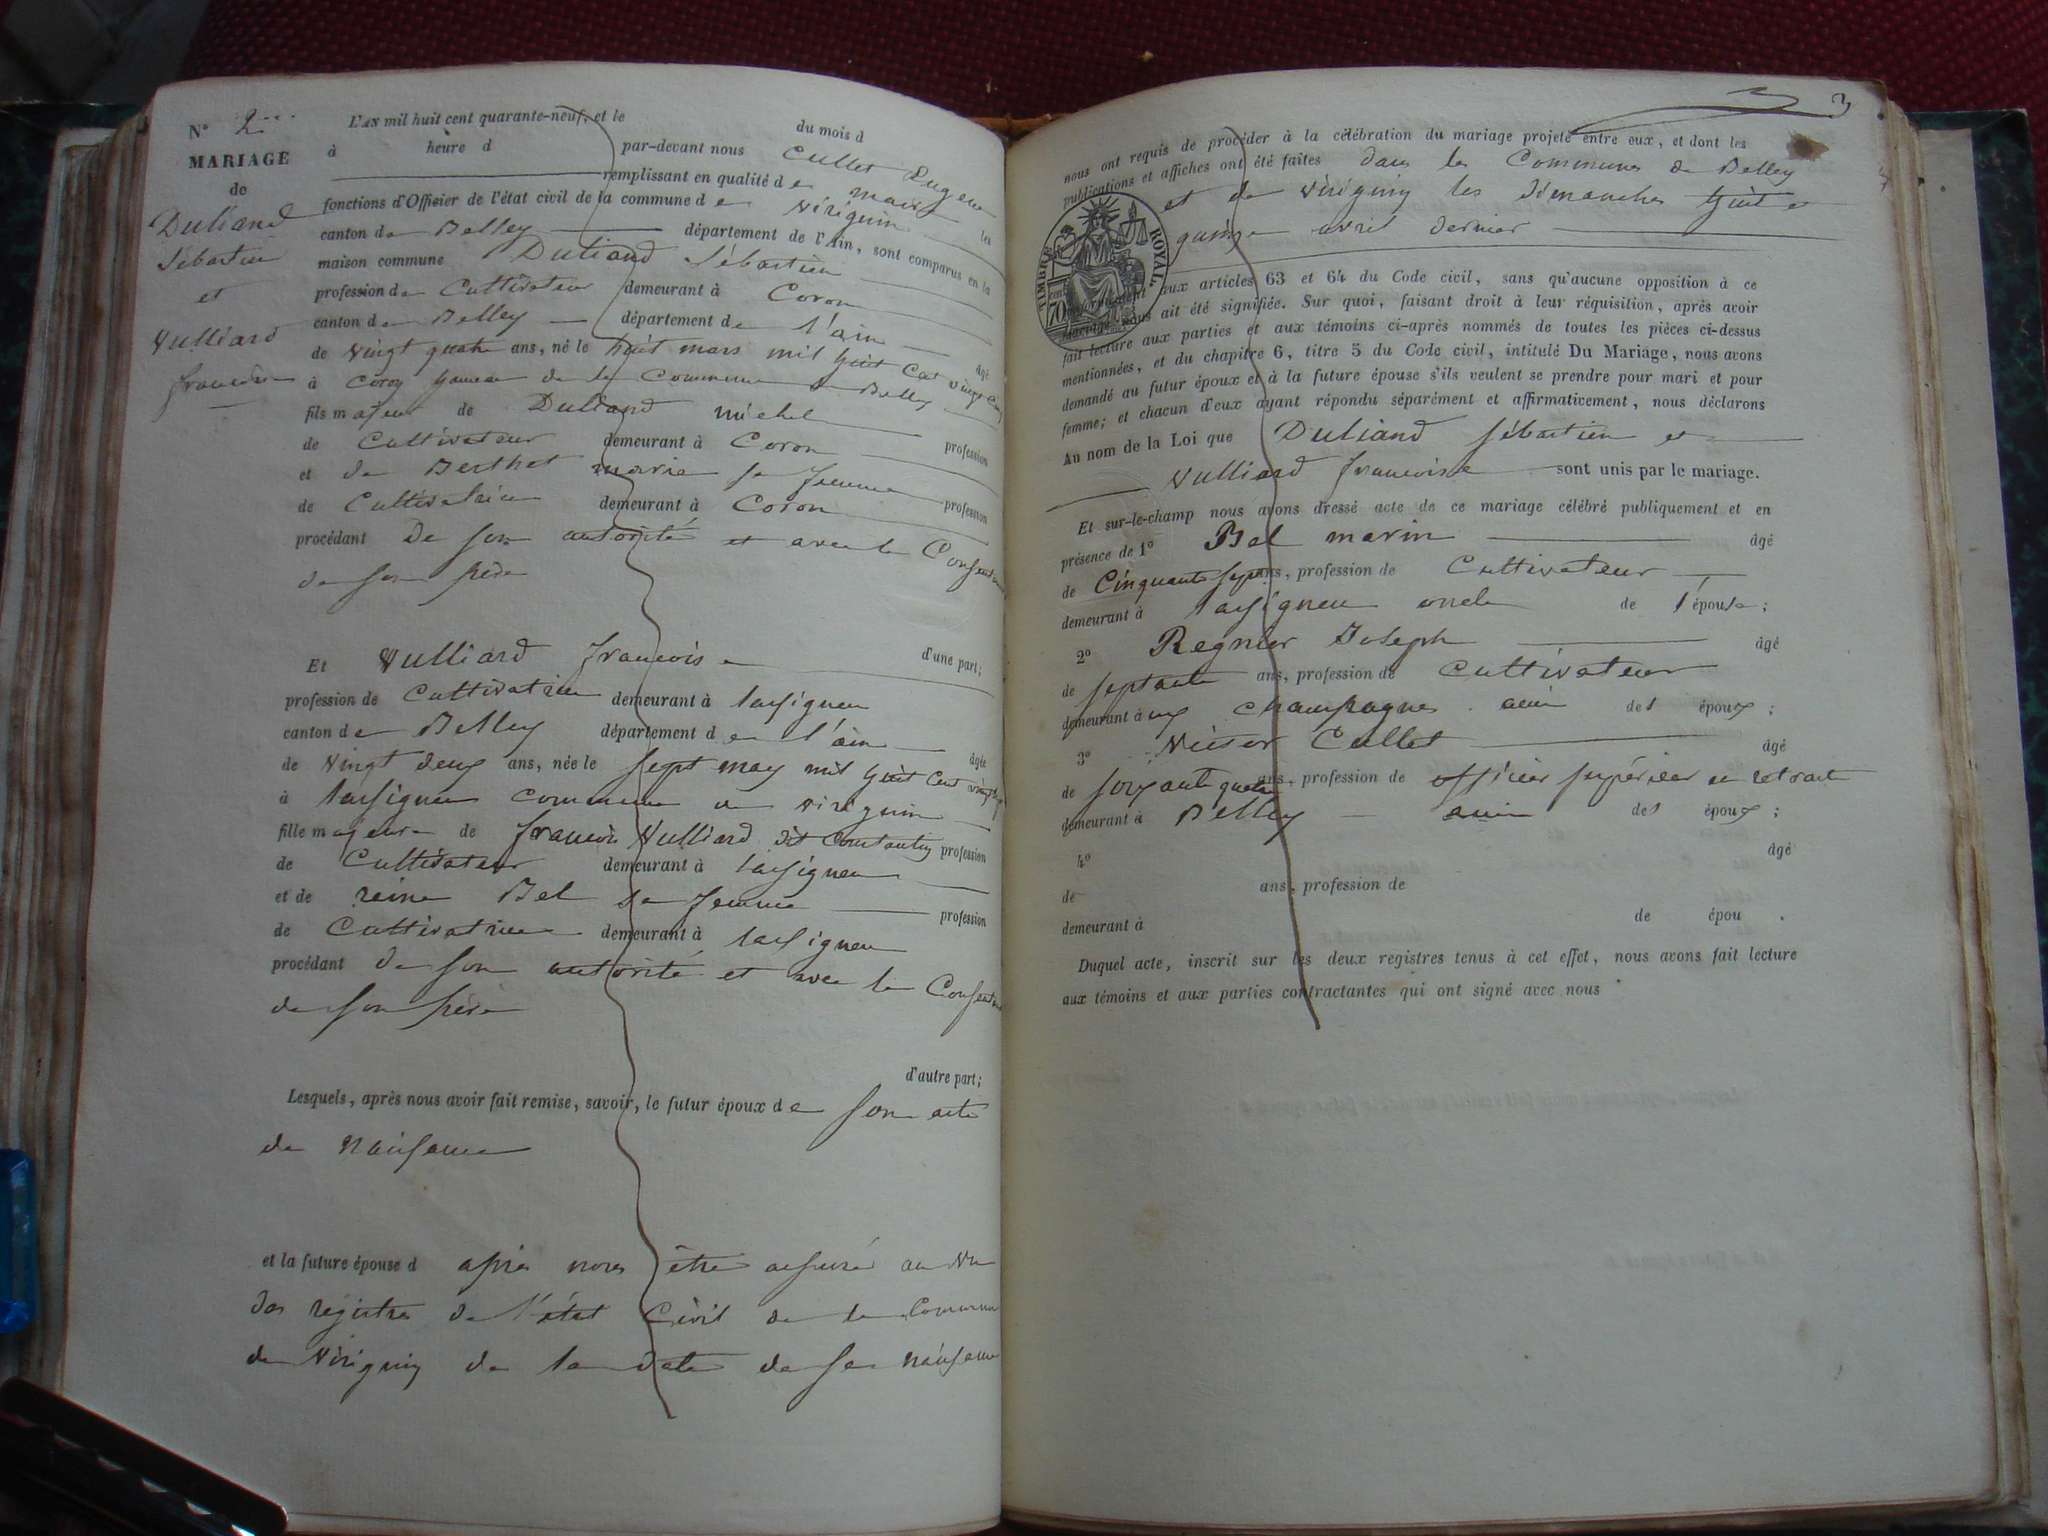 N° 2
MARIAGE
de
Duliand
Sébastien
et
Vulliard
francoise
L'AN mil huit cent quarante-neuf, et le du mois d
à heure d par-devant nous Cullet Eugene
remplissant en qualité de maire les
fonctions d'Officier de l'état civil de la commune de viriguin
canton de Belley département de l'Ain, sont comparus en la
maison commune Duliand Sébastien
profession de Cultivateur demeurant à Coron
canton de Belley département de l'ain âgé
de vingt quatre ans, né le huit mars mil huit cent vingt cinq
à Coron hameau de la Commune de Belley
fils majeur de Duliand michel profession
de Cultivateur demeurant à Coron
et de Berthet marie sa femme profession
de Cultivatrice demeurant à Coron
procédant de son autorité et avec le
de son père
d'une part;
Et Vulliard francoise
profession de Cultivatrice demeurant à lassigneu
canton de Belley département de l'ain âgée
de vingt deux ans, née le sept may mil huit cent
à lassigneu commune de viriguin
fille majeure de francois Vulliard dit Constantin profession
de Cultivateur demeurant à lassigneu
et de reine Bel sa femme profession
de Cultivatrice demeurant à lassigneu
procédant de son autorité et avec le
de son père
d'autre part;
Lesquels, après nous avoir fait remise, savoir, le futur époux de son acte
de naissance
et la future épouse d après nous être assuré au vu
des registres de l'état Civil de la Commune
de Viriguin de la date de sa naissance
3
nous ont requis de procéder à la célébration du mariage projeté entre eux, et dont les
publications et affiches ont été faites dans les Communes de Belley
et de viriguin les dimanches huit et
quinze avril dernier
TIMBRE ROYAL
70
conformément aux articles 63 et 64 du Code civil, sans qu'aucune opposition à ce
mariage nous ait été signifiée. Sur quoi, faisant droit à leur réquisition, après avoir
fait lecture aux parties et aux témoins ci-après nommés de toutes les pièces ci-dessus
mentionnées, et du chapitre 6, titre 5 du Code civil, intitulé Du Mariage, nous avons
demandé au futur époux et à la future épouse s'ils veulent se prendre pour mari et pour
femme; et chacun d'eux ayant répondu séparément et affirmativement, nous déclarons
Au nom de la Loi que Duliand Sébastien et
Vulliard francoise sont unis par le mariage.
Et sur-le-champ nous avons dressé acte de ce mariage célébré publiquement et en
présence de 1° Bel marin âgé
de Cinquante sept ans, profession de Cultivateur
demeurant à lassigneu oncle de l'épouse;
2° Regnier Joseph âgé
de septante ans, profession de Cultivateur
demeurant à champagne ami des époux;
3° Victor Cullet âgé
de soixante quatre ans, profession de officier supérieur en retraite
demeurant à Belley ami des époux;
4° âgé
de ans, profession de
demeurant à de épou .
Duquel acte, inscrit sur les deux registres tenus à cet effet, nous avons fait lecture
aux témoins et aux parties contractantes qui ont signé avec nous